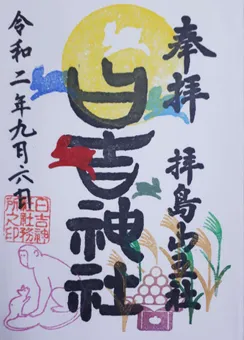 奉拝
拝島山王社
日吉神社
令和二年九月六日
日吉神
社財務
所之印